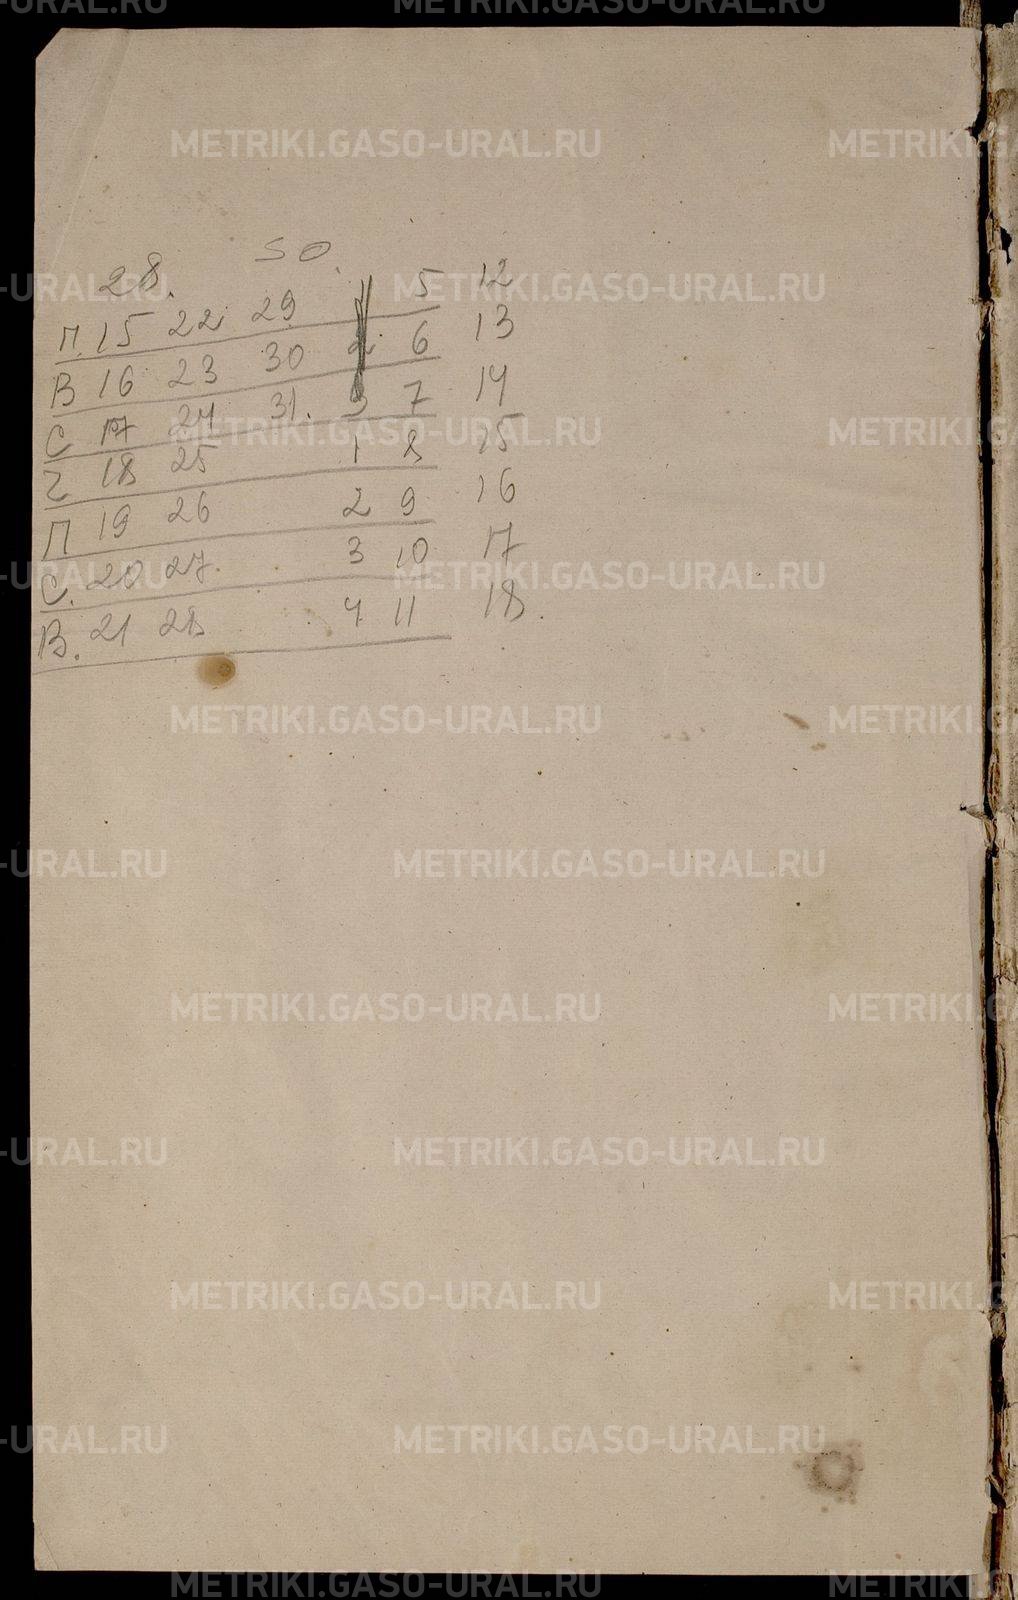 28. 50.
П. 15 22 29 5 12
В 16 23 30 2 6 13
С 17 24 31. 3 7 14
Ч 18 25 1 8 15
П 19 26 2 9 16
С. 20 27. 3 10 17
В. 21 28 4 11 18.
METRIKI.GASO-URAL.RU